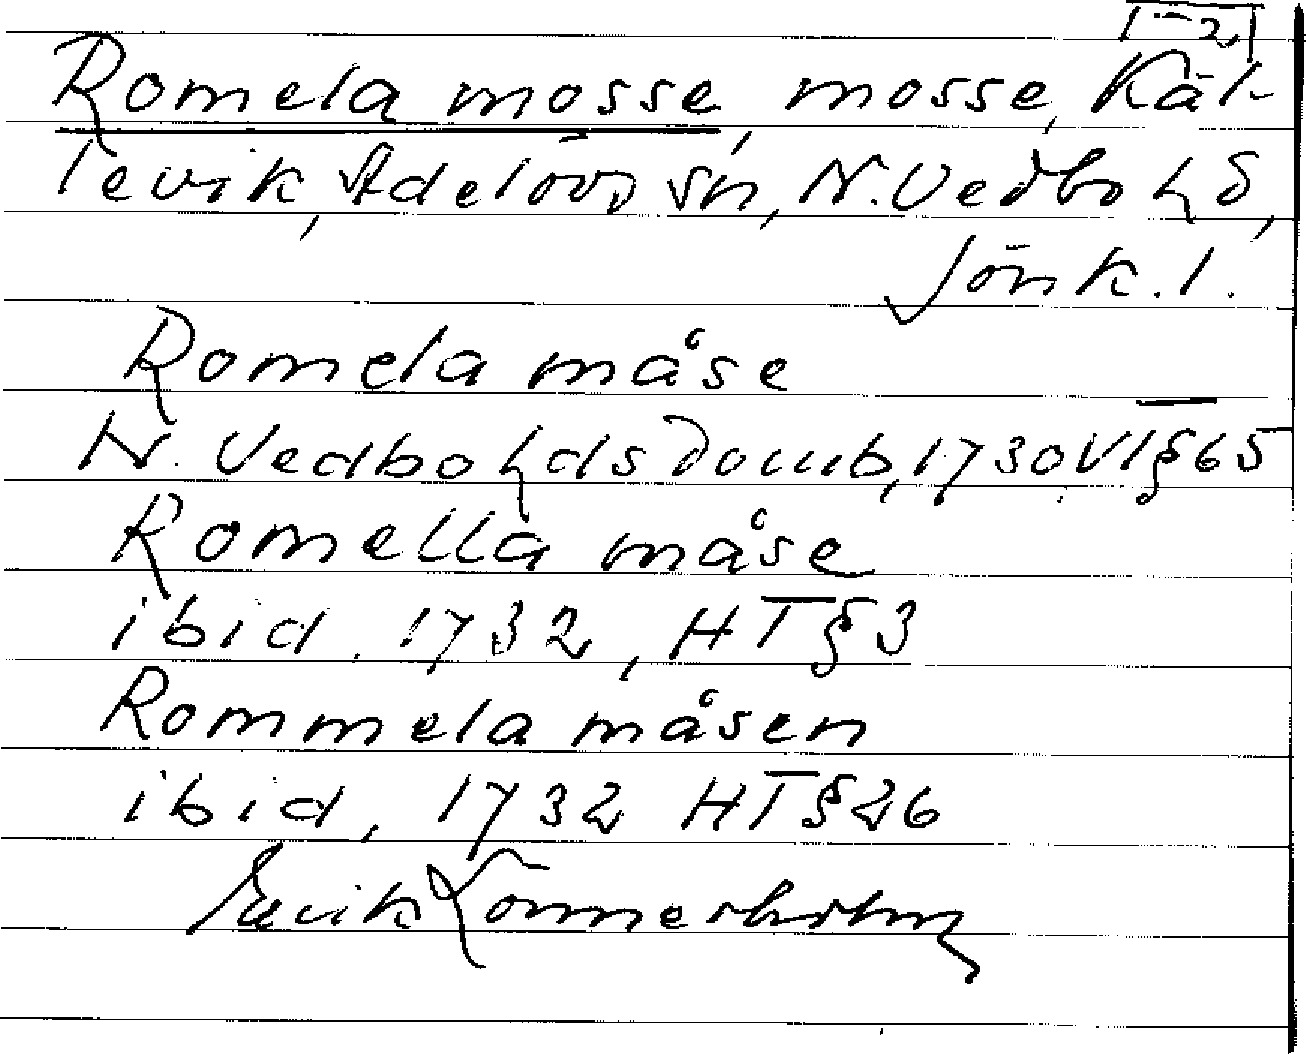 1-2
Romela mosse, mosse, Käl-
levik, Adelövs sn, N. Vedbo hd,
Jönk. l.
Romela måse
N. Vedbo hds Domb, 1730 VI § 65
Romella måse
ibid, 1732, HT § 3
Rommela måsen
ibid, 1732 HT § 26